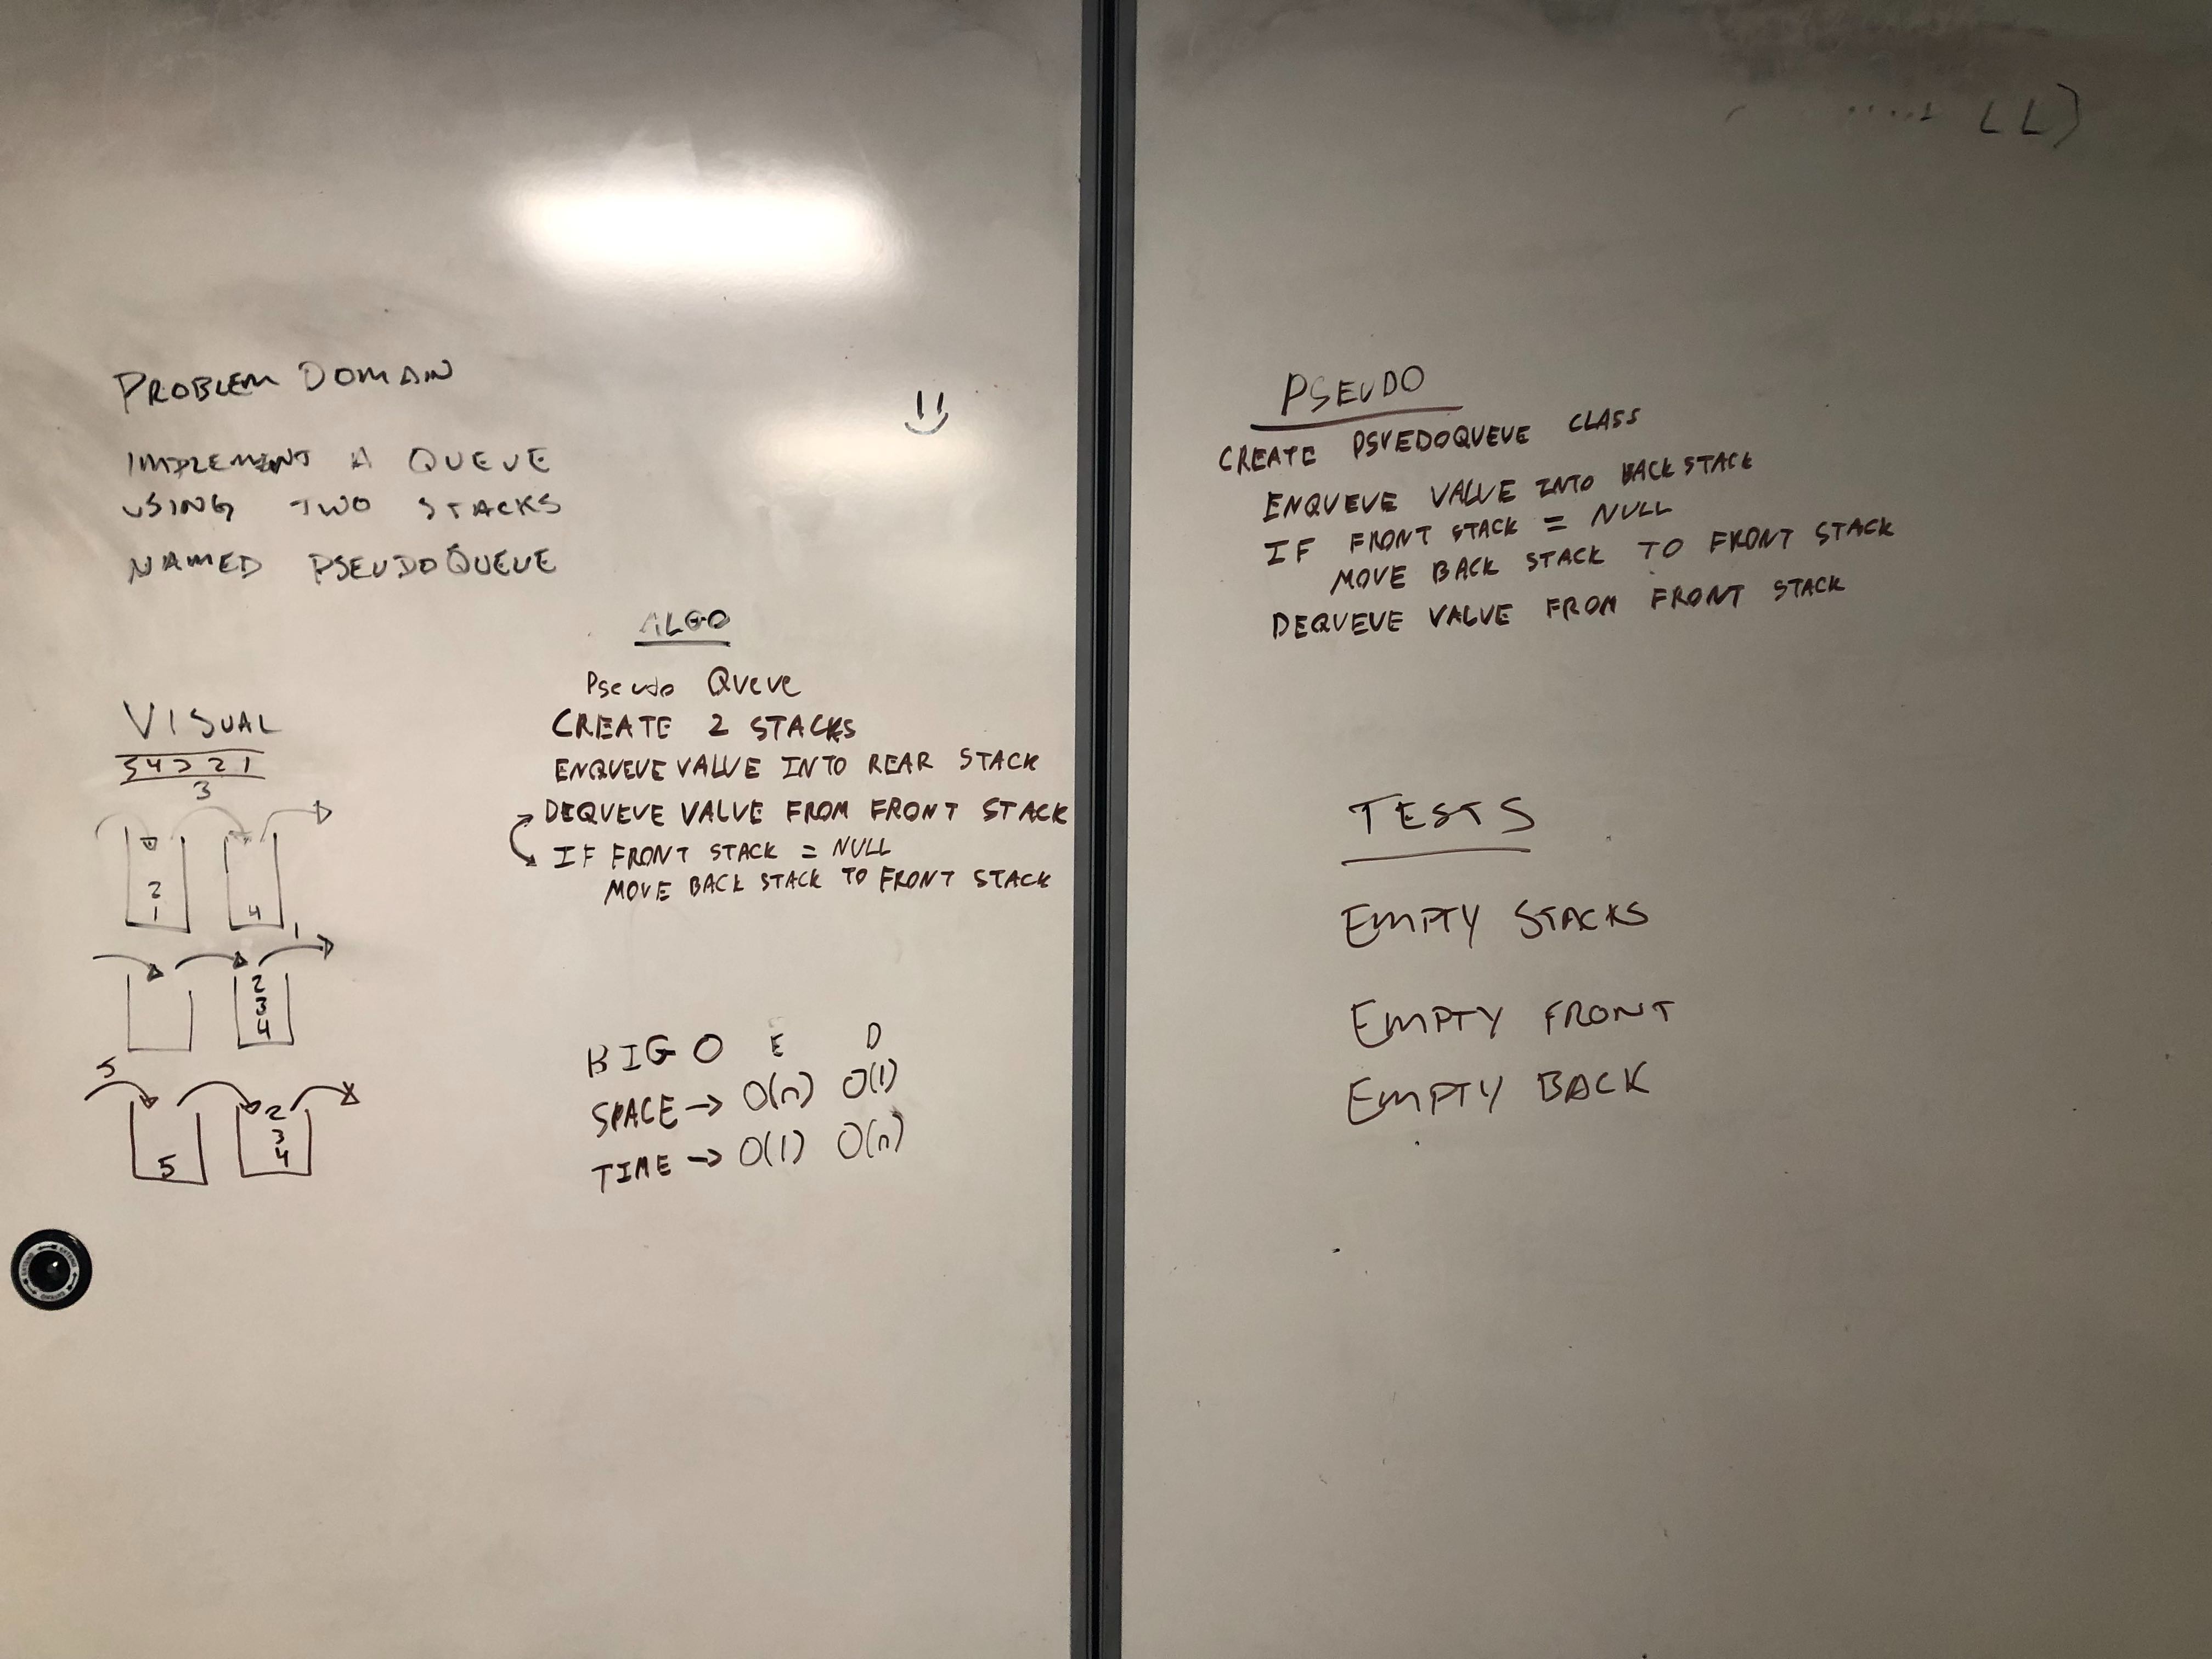 LL)
PROBLEM DOMAIN
IMPLEMENT A QUEUE
USING TWO STACKS
NAMED PSEUDOQUEUE
ALGO
Pseudo Queue
CREATE 2 STACKS
ENQUEUE VALUE INTO REAR STACK
DEQUEUE VALUE FROM FRONT STACK
IF FRONT STACK = NULL
MOVE BACK STACK TO FRONT STACK
VISUAL
5 4 3 2 1
3
2
1
4
1
2
3
4
5
5
2
3
4
BIG O E D
SPACE → O(n) O(1)
TIME → O(1) O(n)
PSEUDO
CREATE PSUEDOQUEUE CLASS
ENQUEUE VALUE INTO BACK STACK
IF FRONT STACK = NULL
MOVE BACK STACK TO FRONT STACK
DEQUEUE VALUE FROM FRONT STACK
TESTS
EMPTY STACKS
EMPTY FRONT
EMPTY BACK